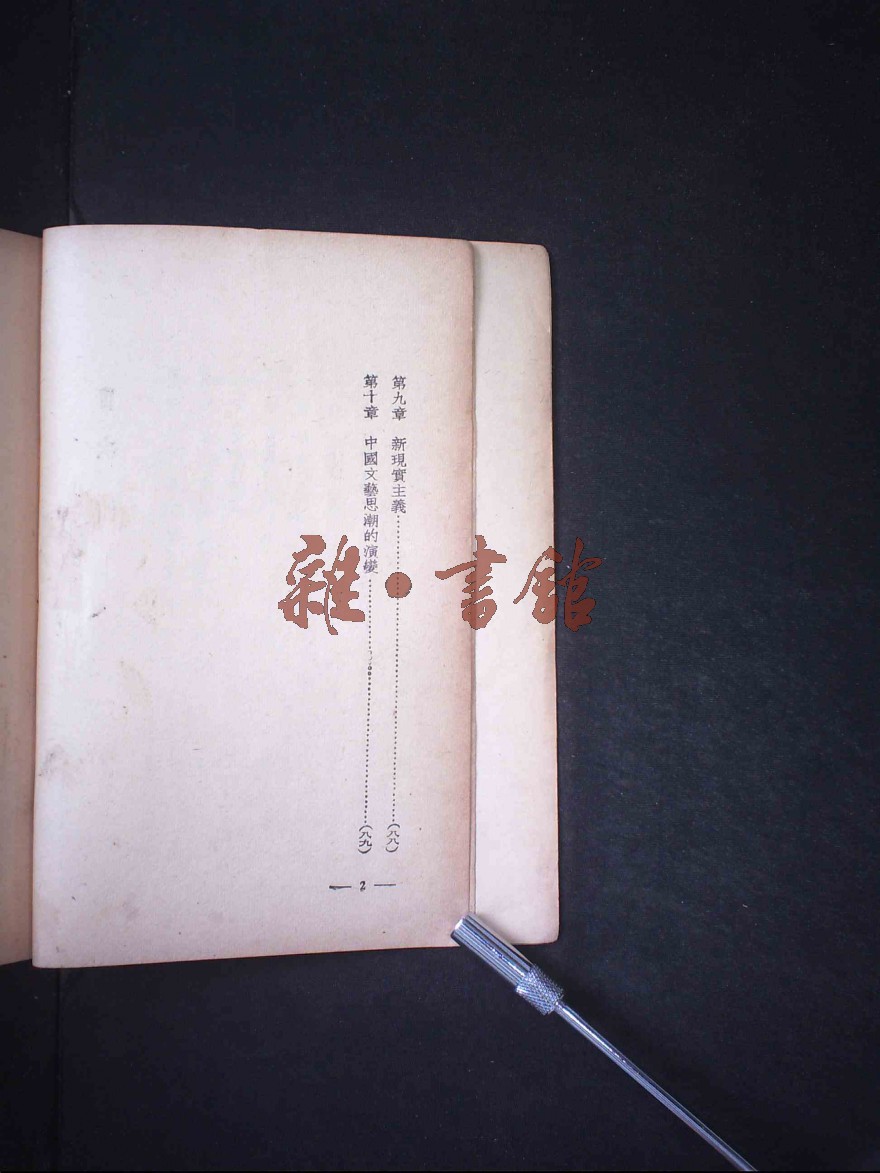 第九章　新現實主義……………………(八八)
第十章　中國文藝思潮的演變……………………(八九)
— 2 —
雜·書館